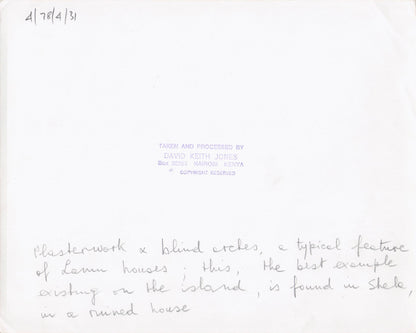 4/78/4/31
TAKEN AND PROCESSED BY
DAVID KEITH JONES
Box NAIROBI KENYA
© COPYRIGHT RESERVED
Plasterwork & blind arches, a typical feature
of Lamu houses; this, the best example
existing on the island, is found in Shela,
in a ruined house